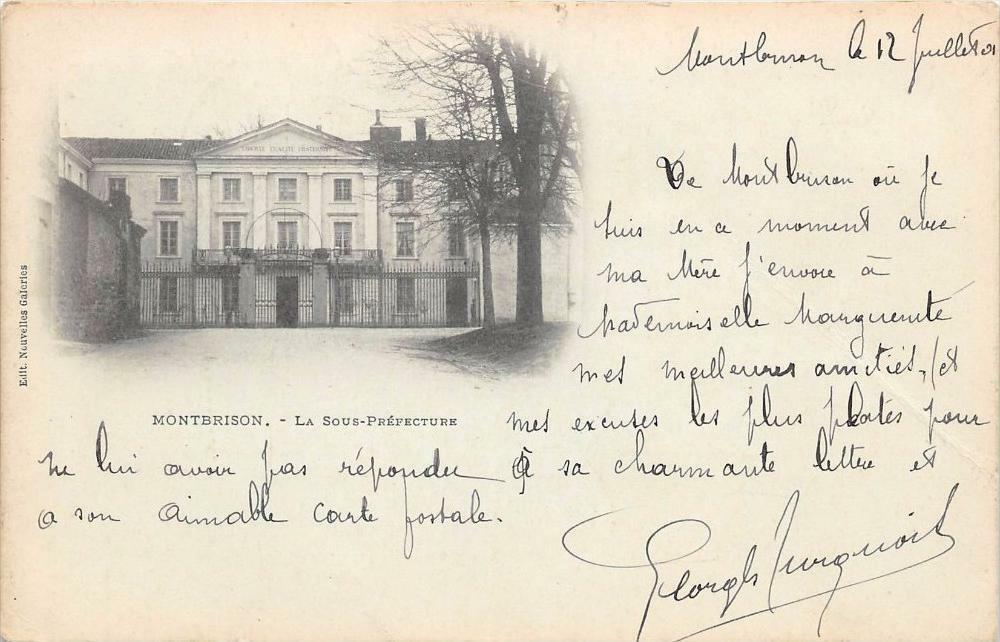 Montbrison le 12 Juillet 01
LIBERTE EGALITE FRATERNITE
De Montbrison où je
suis en ce moment avec
ma Mère j'envoie à
Mademoiselle Marguerite
mes meilleures amitiés, (et
mes excuses les plus plates pour
ne lui avoir pas répondu à sa charmante lettre et
a son aimable carte postale.
Georges
Edit. Nouvelles Galeries
MONTBRISON. - LA SOUS-PRÉFECTURE